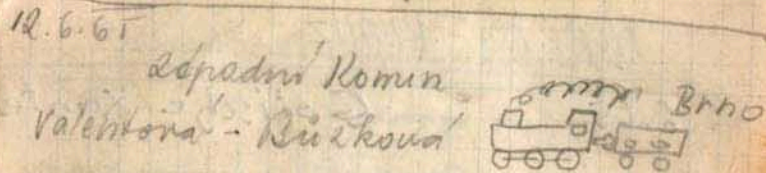 12.6.65
západní Komín
Valentová - Bůžková
Brno